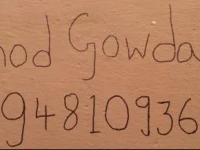 nod Gowda
94810936